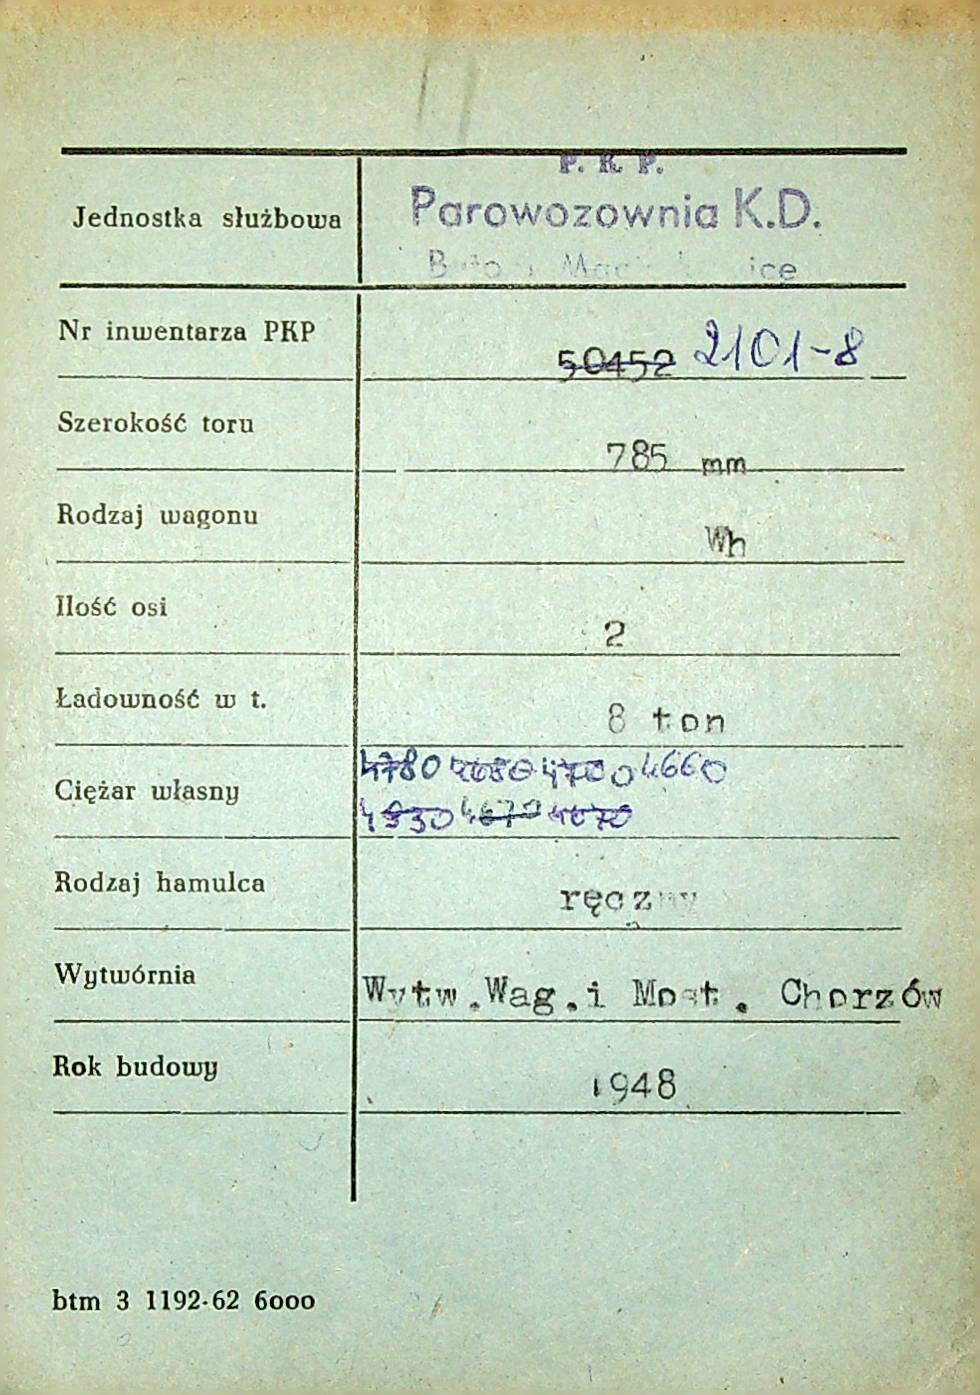 P. K. P.
Jednostka służbowa Parowozownia K.D.
Nr inwentarza PKP 50452 2101-8
Szerokość toru 785 mm
Rodzaj wagonu Wh
Ilość osi 2
Ładowność w t. 8 ton
4780 4680 4700 4660
Ciężar własny
4930 4670 4670
Rodzaj hamulca ręczny
Wytwórnia Wytw.Wag.i Most. Chorzów
Rok budowy 1948
btm 3 1192-62 6000